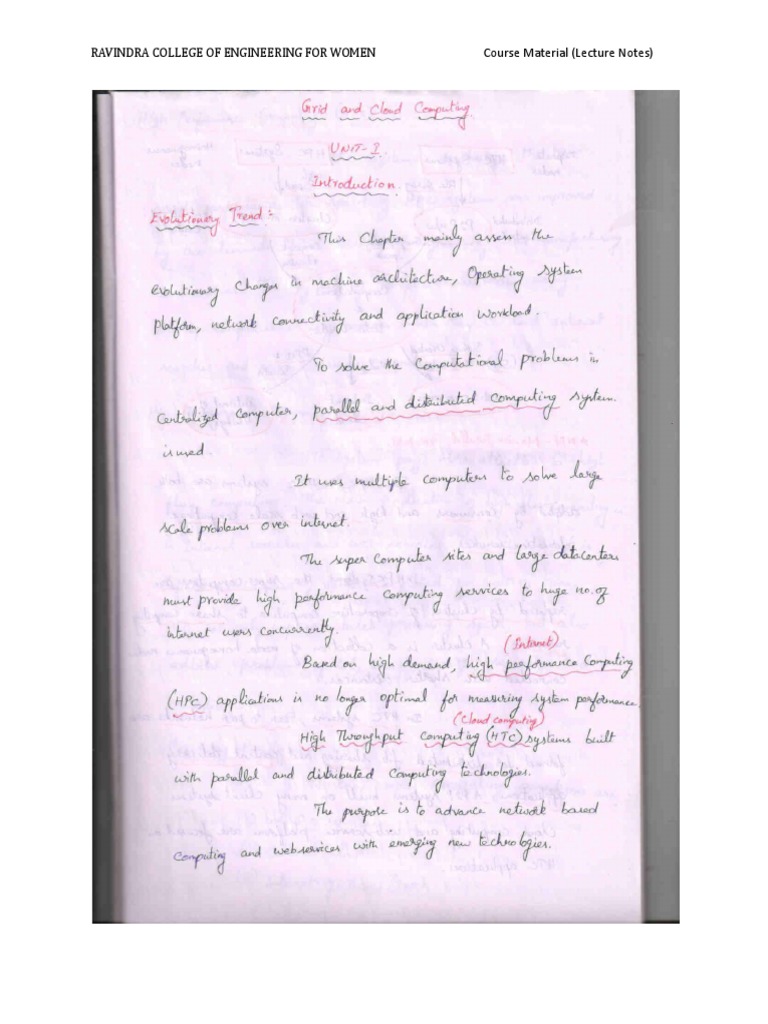 RAVINDRA COLLEGE OF ENGINEERING FOR WOMEN Course Material (Lecture Notes)
Grid and Cloud Computing.
UNIT-I.
Introduction.
Evolutionary Trend:-
This Chapter mainly assess the
Evolutionary Changes in machine architecture, Operating system
platform, network connectivity and application workload.
To solve the Computational problems in
Centralized Computer, parallel and distributed computing system
is used.
It uses multiple computers to solve large
scale problems over internet.
The super Computer sites and large datacenters
must provide high performance Computing services to huge no. of
internet users concurrently.
(Internet)
Based on high demand, high performance Computing
(HPC) applications is no longer optimal for measuring system performance.
(Cloud computing)
High Throughput Computing (HTC) systems built
with parallel and distributed Computing technologies.
The purpose is to advance network based
Computing and webservices with emerging new technologies.